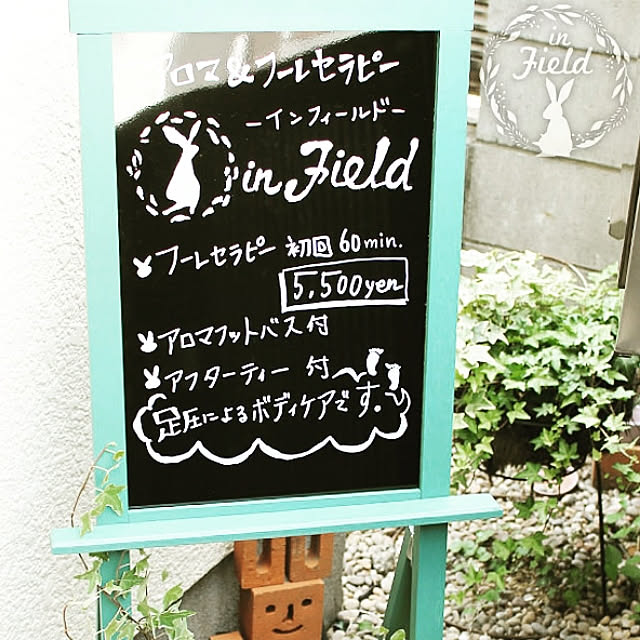 アロマ&フーレセラピー
-インフィールド-
in Field
フーレセラピー 初回 60min.
5,500yen
アロマフットバス付
アフターティー 付
足圧によるボディケアです.
in
Field